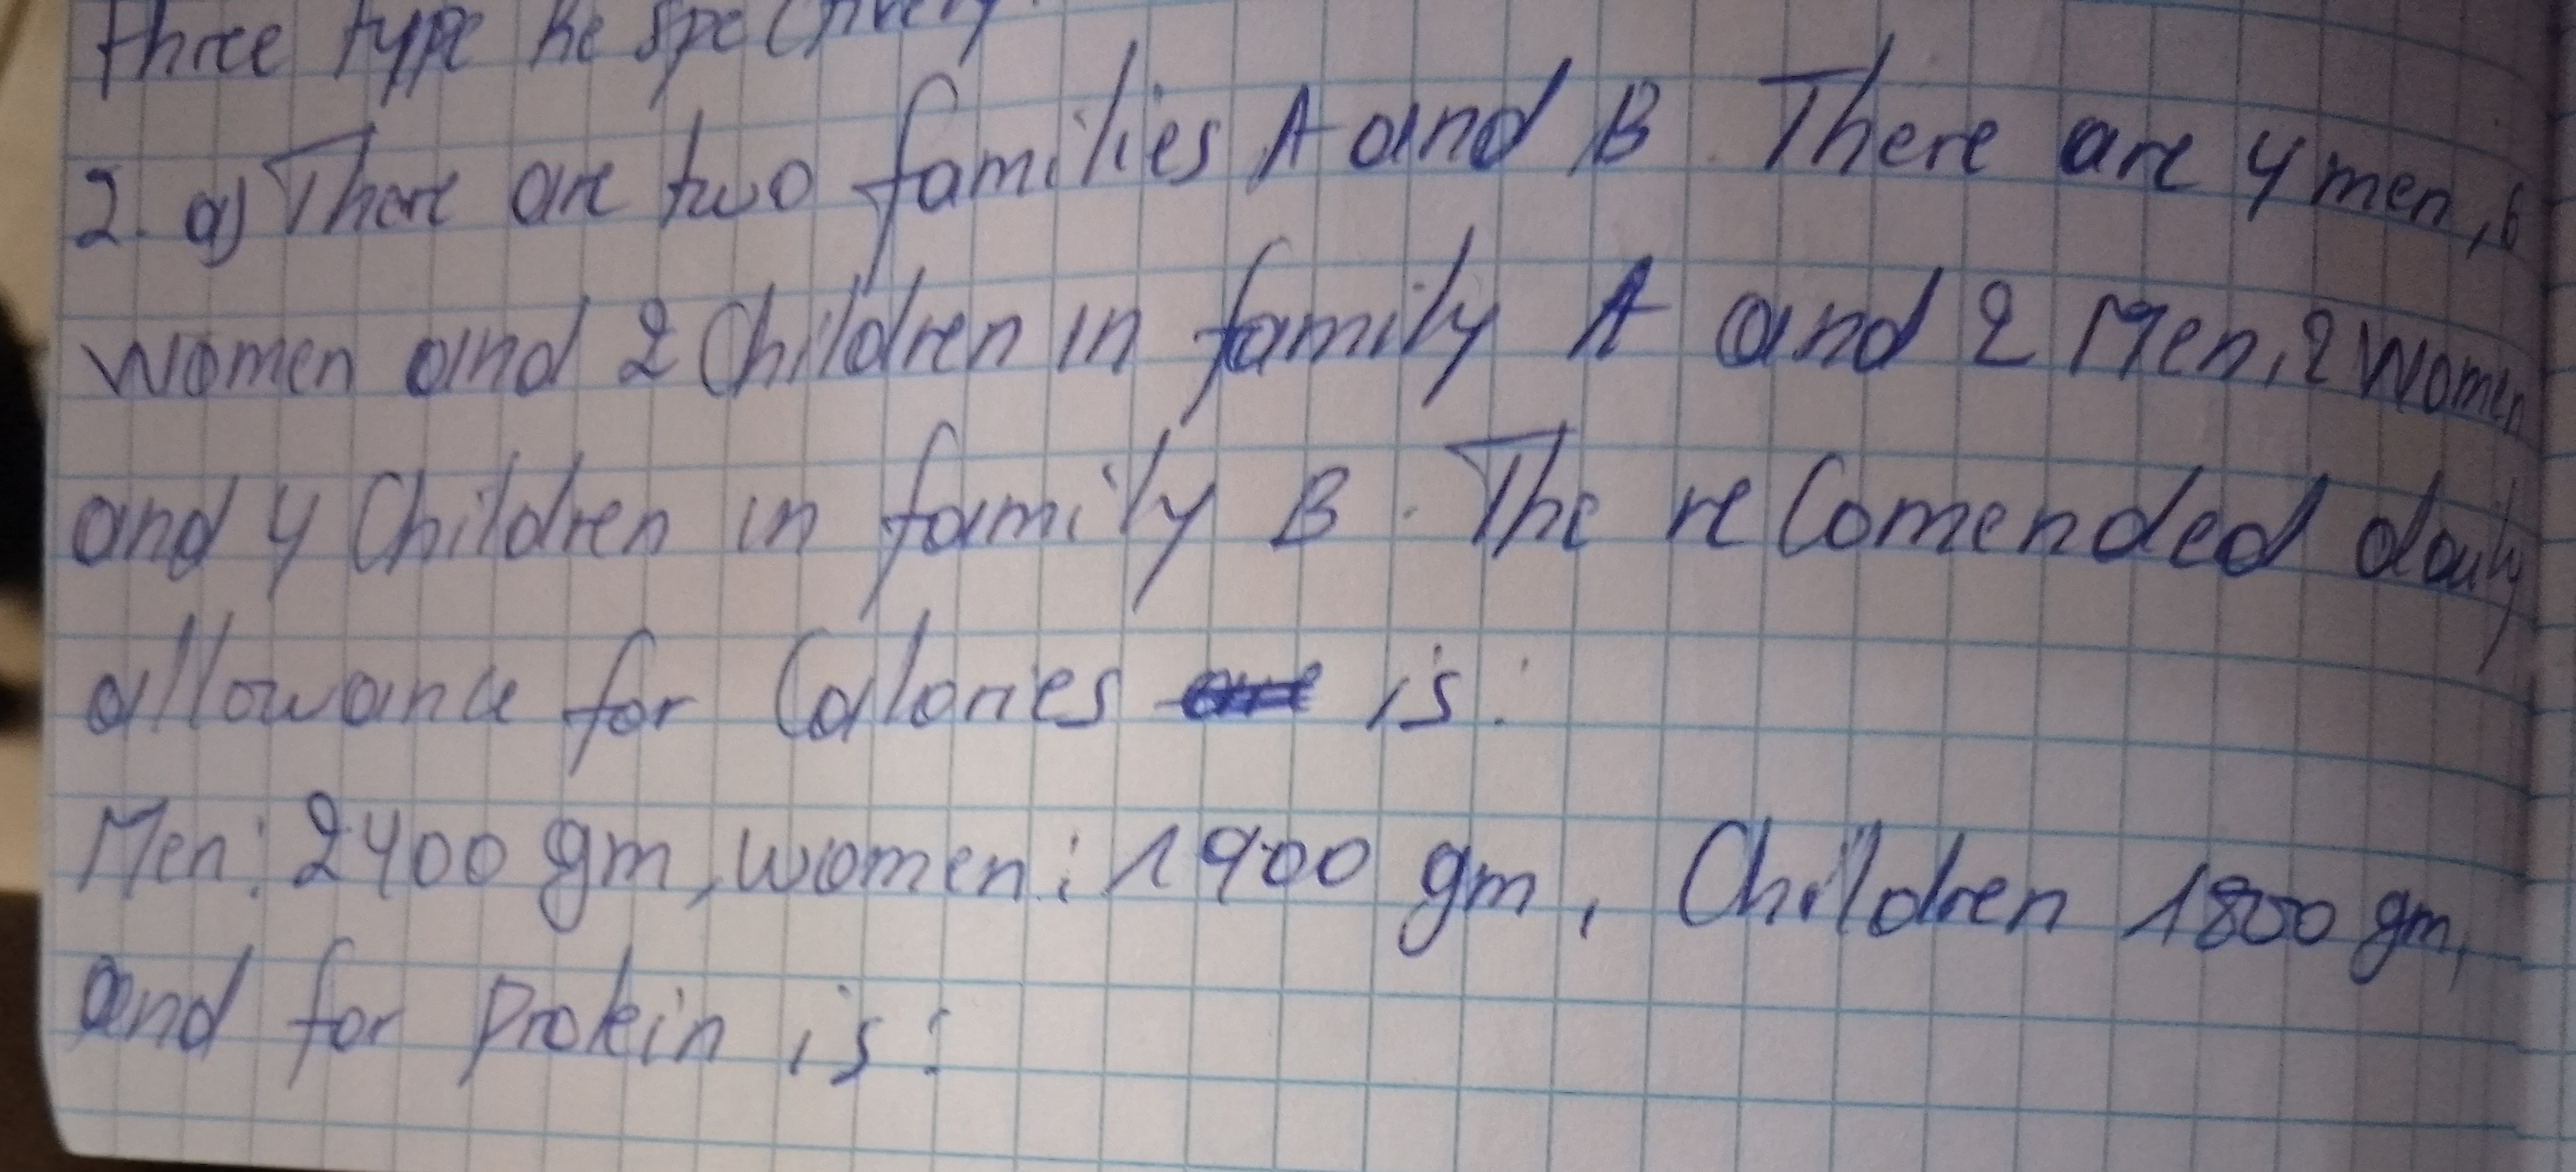 three type Respectively.
2. a) There are two families A and B. There are 4 men, 6
women and 2 Children in family A and 2 Men, 2 women
and 4 Children in family B. The recomended daily
allowance for Calories is:
Men: 2400 gm, women: 1900 gm, Children 1800 gm,
and for protein is: